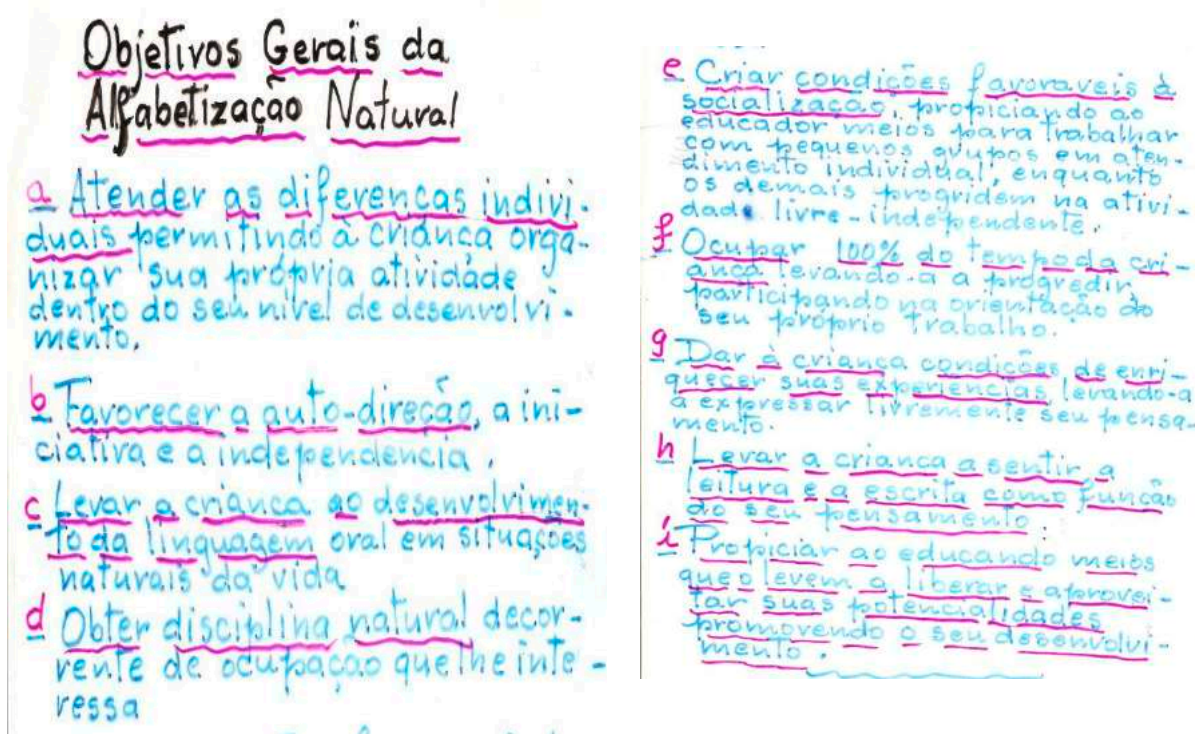 Objetivos Gerais da
Alfabetização Natural
a Atender as diferenças indivi-
duais permitindo à criança orga-
nizar sua própria atividade
dentro do seu nível de desenvolvi-
mento.
b Favorecer a auto-direção, a ini-
ciativa e a independencia.
c Levar a criança ao desenvolvimen-
to da linguagem oral em situações
naturais da vida
d Obter disciplina natural decor-
rente de ocupação que lhe inte-
ressa
e Criar condições favoraveis à
socialização, propiciando ao
educador meios para trabalhar
com pequenos grupos em aten-
dimento individual, enquanto
os demais progridem na ativi-
dade livre-independente.
f Ocupar 100% do tempo da cri-
ança levando-a a progredir
participando na orientação do
seu próprio trabalho.
g Dar à criança condições de enri-
quecer suas experiências, levando-a
a expressar livremente seu pensa-
mento.
h Levar a criança a sentir a
leitura e a escrita como função
do seu pensamento.
i Propiciar ao educando meios
que o levem a liberar e aprovei-
tar suas potencialidades
promovendo o seu desenvolvi-
mento.